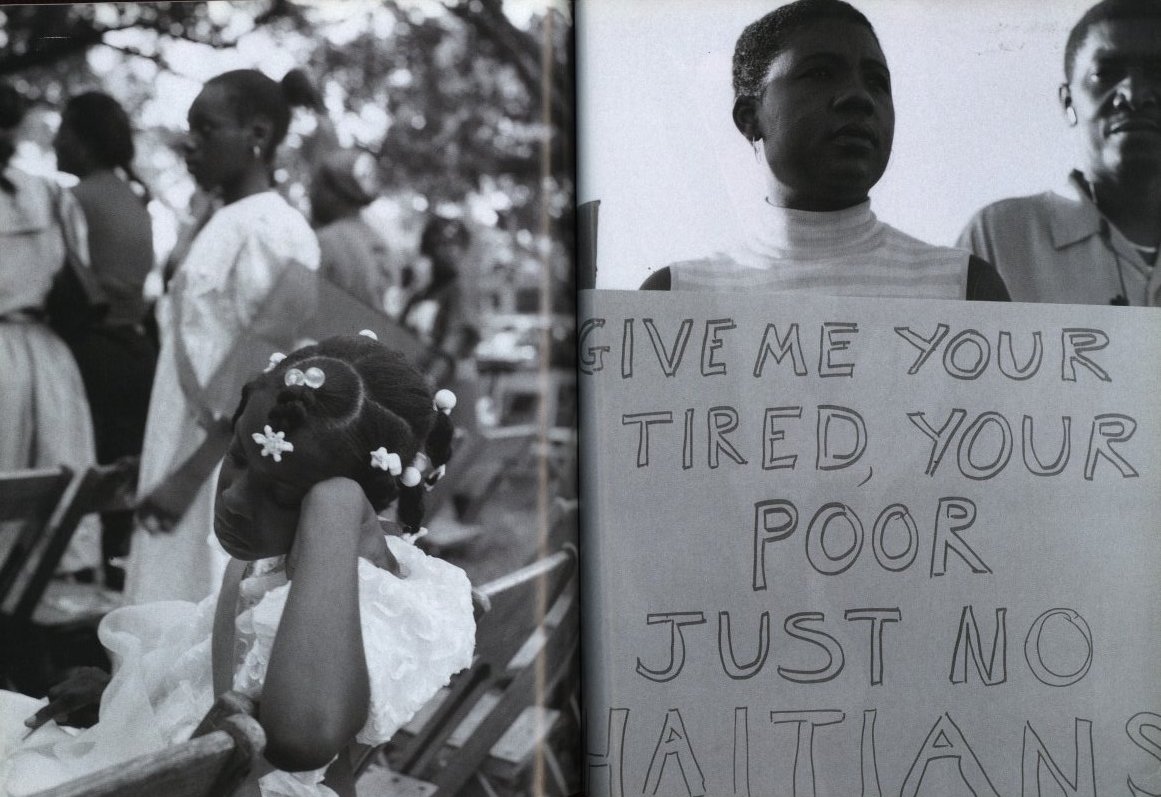 GIVE ME YOUR
TIRED, YOUR
POOR
JUST NO
HAITIANS